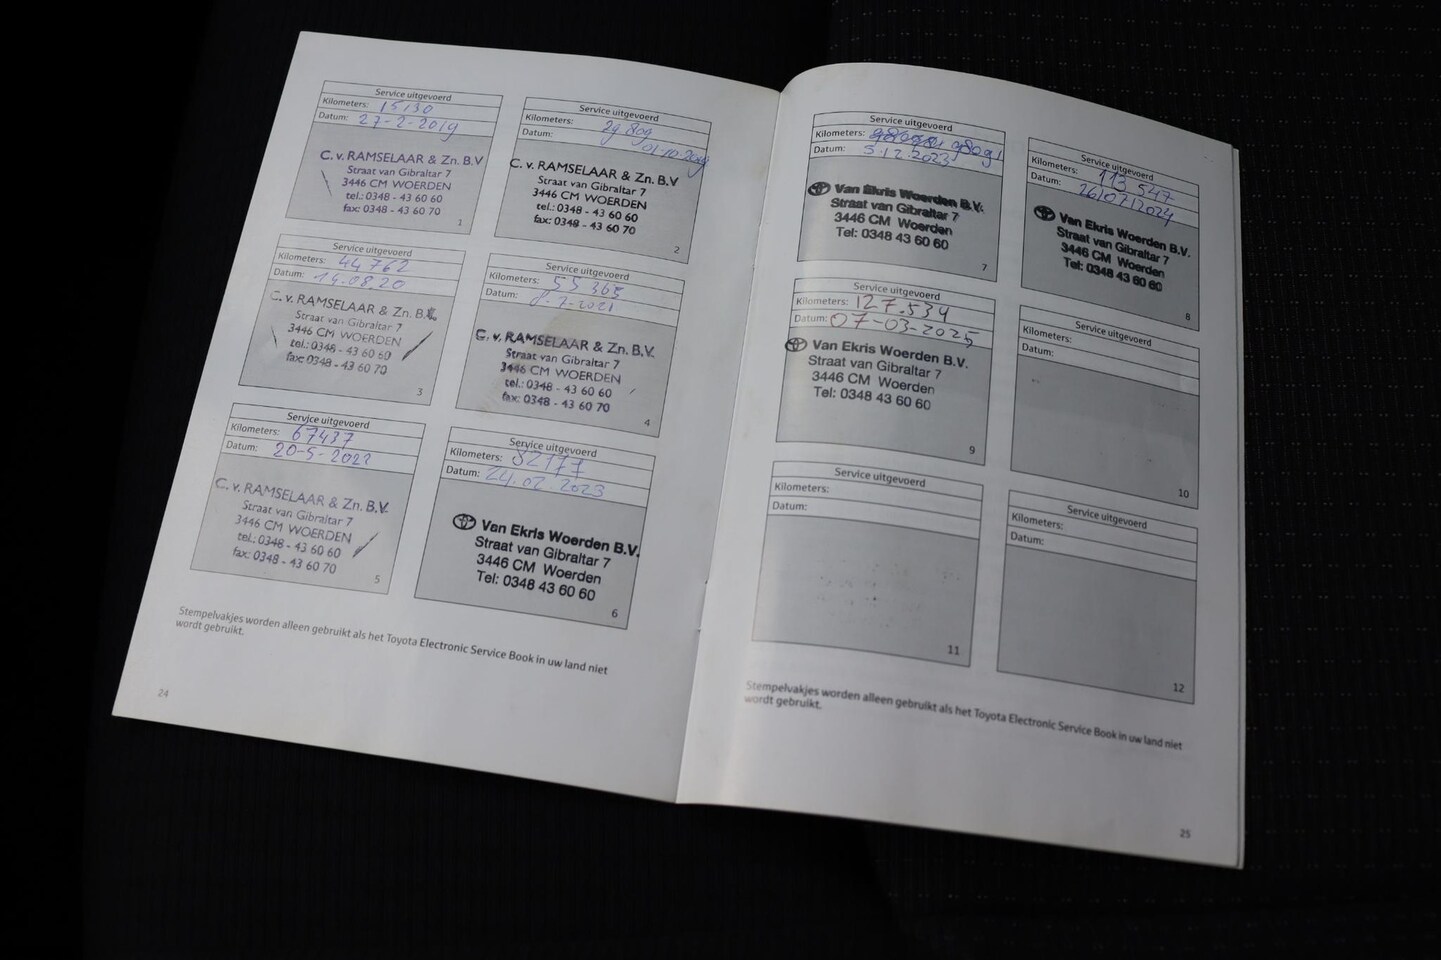 Service uitgevoerd
Kilometers: 15130
Datum: 27-2-2019
C. v. RAMSELAAR & Zn. B.V
Straat van Gibraltar 7
3446 CM WOERDEN
tel.: 0348 - 43 60 60
fax: 0348 - 43 60 70
1
Service uitgevoerd
Kilometers: 29.809
Datum: 01-10-2019
C. v. RAMSELAAR & Zn. B.V
Straat van Gibraltar 7
3446 CM WOERDEN
tel.: 0348 - 43 60 60
fax: 0348 - 43 60 70
2
Service uitgevoerd
Kilometers: 44762
Datum: 14.08.20
C. v. RAMSELAAR & Zn. B.V.
Straat van Gibraltar 7
3446 CM WOERDEN
tel.: 0348 - 43 60 60
fax: 0348 - 43 60 70
3
Service uitgevoerd
Kilometers: 55365
Datum: 8-7-2021
C. v. RAMSELAAR & Zn. B.V.
Straat van Gibraltar 7
3446 CM WOERDEN
tel.: 0348 - 43 60 60
fax: 0348 - 43 60 70
4
Service uitgevoerd
Kilometers: 67437
Datum: 20-5-2022
C. v. RAMSELAAR & Zn. B.V.
Straat van Gibraltar 7
3446 CM WOERDEN
tel.: 0348 - 43 60 60
fax: 0348 - 43 60 70
5
Service uitgevoerd
Kilometers: 82177
Datum: 24.02.2023
Van Ekris Woerden B.V.
Straat van Gibraltar 7
3446 CM Woerden
Tel: 0348 43 60 60
6
Stempelvakjes worden alleen gebruikt als het Toyota Electronic Service Book in uw land niet
wordt gebruikt.
24
Service uitgevoerd
Kilometers: 98091
Datum: 5.12.2023
Van Ekris Woerden B.V.
Straat van Gibraltar 7
3446 CM Woerden
Tel: 0348 43 60 60
7
Service uitgevoerd
Kilometers: 113.547
Datum: 26/07/2024
Van Ekris Woerden B.V.
Straat van Gibraltar 7
3446 CM Woerden
Tel: 0348 43 60 60
8
Service uitgevoerd
Kilometers: 127.534
Datum: 07-03-2025
Van Ekris Woerden B.V.
Straat van Gibraltar 7
3446 CM Woerden
Tel: 0348 43 60 60
9
Service uitgevoerd
Kilometers:
Datum:
10
Service uitgevoerd
Kilometers:
Datum:
11
Service uitgevoerd
Kilometers:
Datum:
12
Stempelvakjes worden alleen gebruikt als het Toyota Electronic Service Book in uw land niet
wordt gebruikt.
25